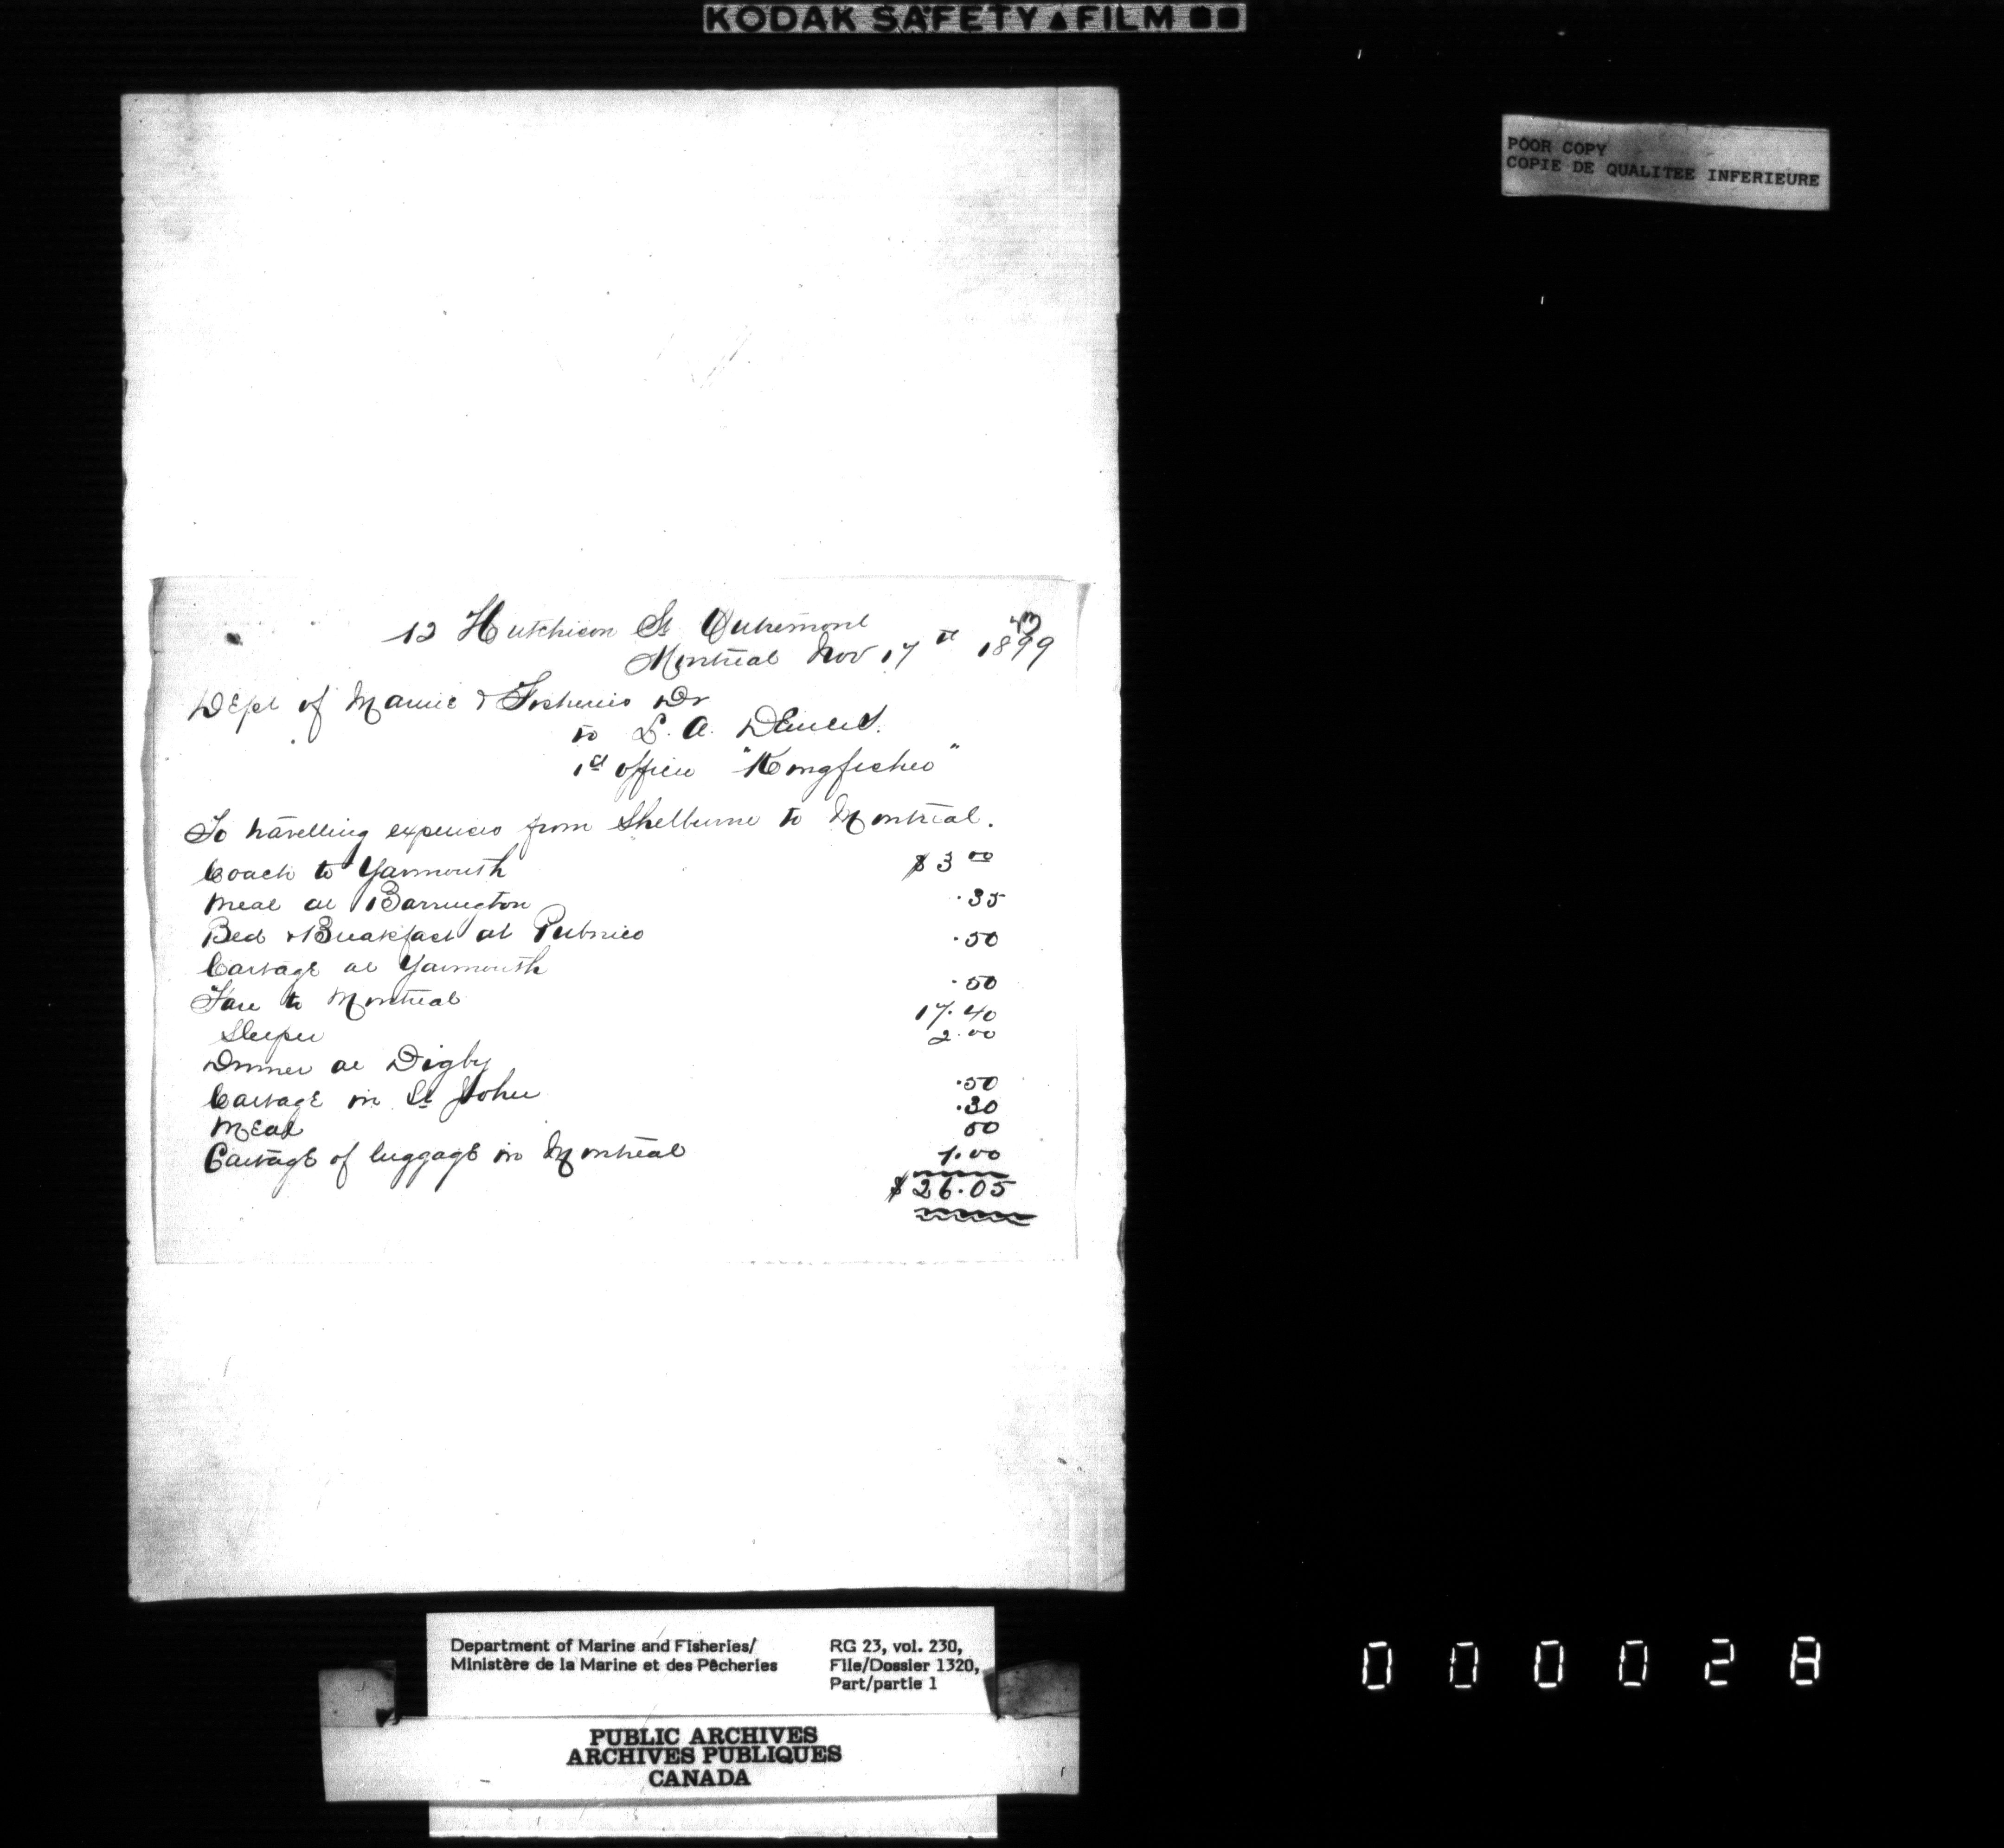 KODAK SAFETY FILM
POOR COPY
COPIE DE QUALITEE INFERIEURE
12 Hutchison St Outremont
Montreal Nov 17th 1899
Dept of Marine & Fisheries Dr
to L. A. Demers.
1st officer "Kingfisher"
To travelling expenses from Shelburne to Montreal.
Coach to Yarmouth $3 00
Meal at Barrington .35
Bed & Breakfast at Pubnico .50
Cartage at Yarmouth .50
Fare to Montreal 17.40
Sleeper 2.00
Dinner at Digby .50
Cartage in St John .30
Meal 50
Cartage of luggage in Montreal 1.00
$26.05
Department of Marine and Fisheries/
Ministère de la Marine et des Pêcheries
RG 23, vol. 230,
File/Dossier 1320,
Part/partie 1
PUBLIC ARCHIVES
ARCHIVES PUBLIQUES
CANADA
000028